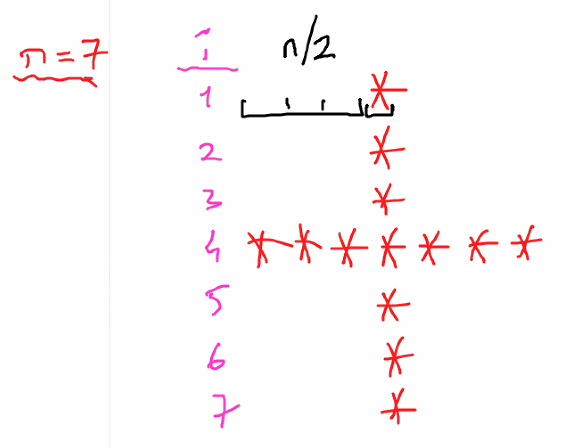 n=7
i n/2
1 *
2 *
3 *
4 * * * * * * *
5 *
6 *
7 *